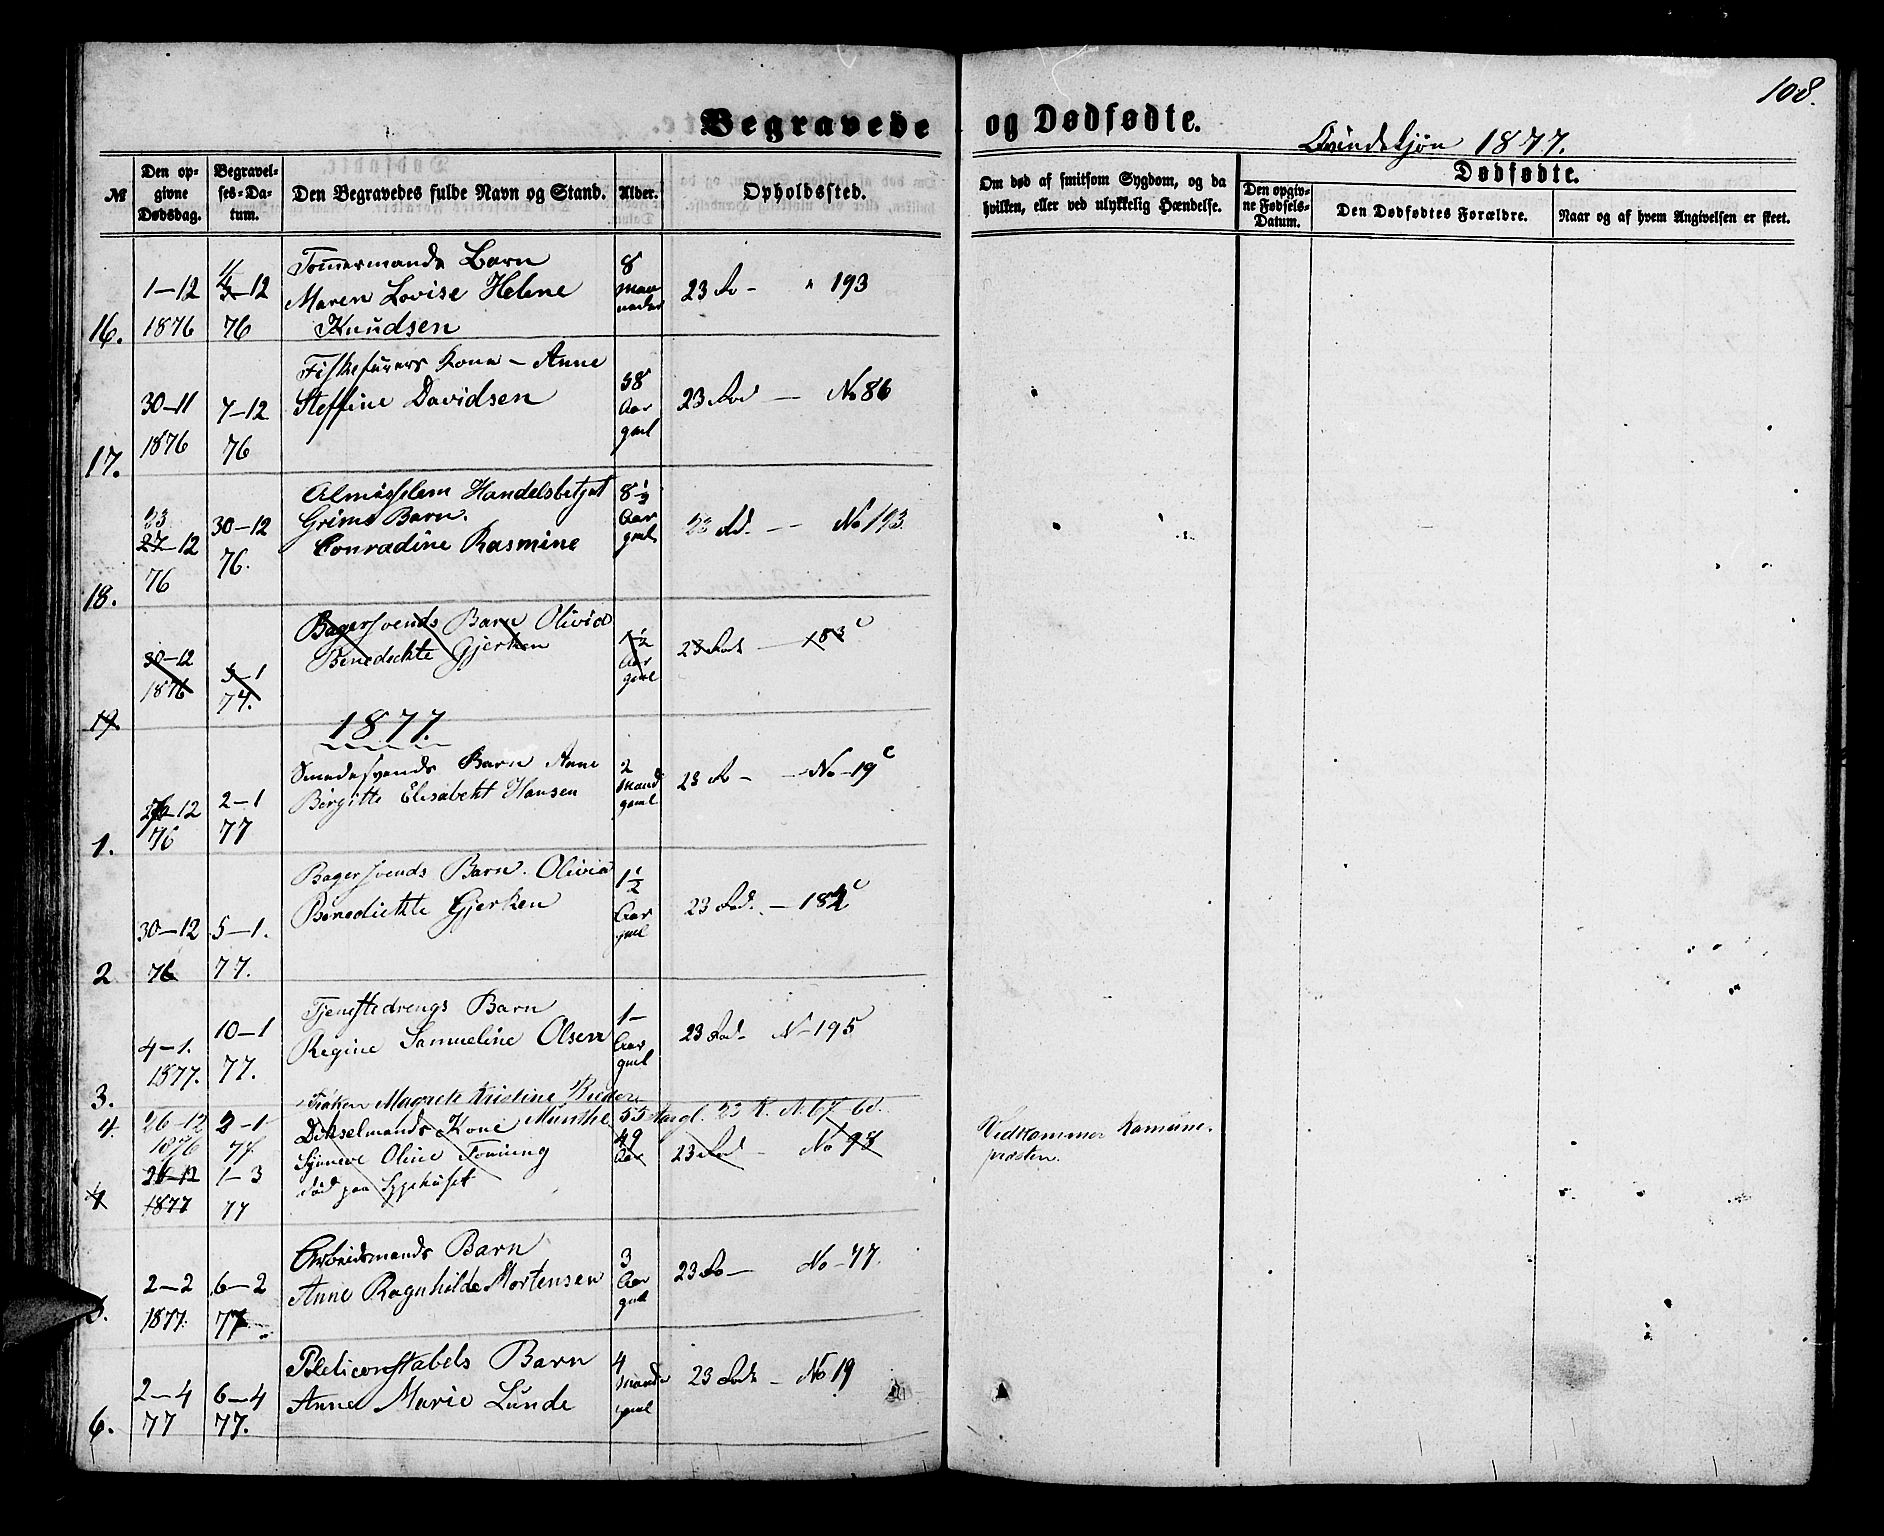 108.
Begravede og Dødfødte.
Qvindekjøn 1877.
№
Den opgivne Dødsdag.
Begravelses-Datum.
Den Begravedes fulde Navn og Stand.
Alder.
Opholdssted.
Om død af smitsom Sygdom, og da hvilken, eller ved ulykkelig Hændelse.
Dødfødte.
Den opgivne Fødsels-Datum.
Den Dødfødtes Forældre.
Naar og af hvem Angivelsen er skeet.
Tømermands Barn
Maren Lovise Helene
Knudsen
16. 1–12 1876
–12 76
8
23 Ro – " 193
Kone – Anne
Steffine Davidsen
17. 30–11 1876
7–12 76
58 Aar gml
23 Rod — No 86
Handelsbetjnt
Grims Barn.
Conradine Rasmine
18. 23 27–12 76
30–12 76.
8 ½ Aar gml
23 Rd. — No 193.
Bagersvends Barn Olivia
Benedichte Gjerken
19. 30–12 1876
5–1 74.
1½ Aar gml
23 Rode — 183 c
1877.
Smedesvends Barn Anne
Birgitte Elisabeht Hansen
1. –12 76
2–1 77
2 gaml
23 R – — No – 19 c
Bagersvends Barn. Olivia
Benedichte Gjerken
2 30–12 76
5–1. 77.
1½ Aar gml
23 Rod. — 182 c
Tjenestedrengs Barn
Regine Samueline Olsen
3. 4–1. 1877.
10–1 77.
1– Aar gml
23 Rod. N – 195
Magrete Kristine
Munthe
4. 26–12 1876
2–1 77
55 Aar gl. 23 R. N. 67
Kone
Oline
død paa Sygehuset
4 –12 1877
1–3 77
49 Aar
23 Rod No 98
Vedkommer Komune-
præsten.
Arbeidsmands Barn
Anne Ragnhilde Mortensen
5. 2–2 1877.
6–2 77
3 Aar gml
23 Ro — No – 77.
Politiconstabels Barn
Anne Marie Lunde
6. 2–4 77
6–4 77.
4 gml
23 Rode – No 19